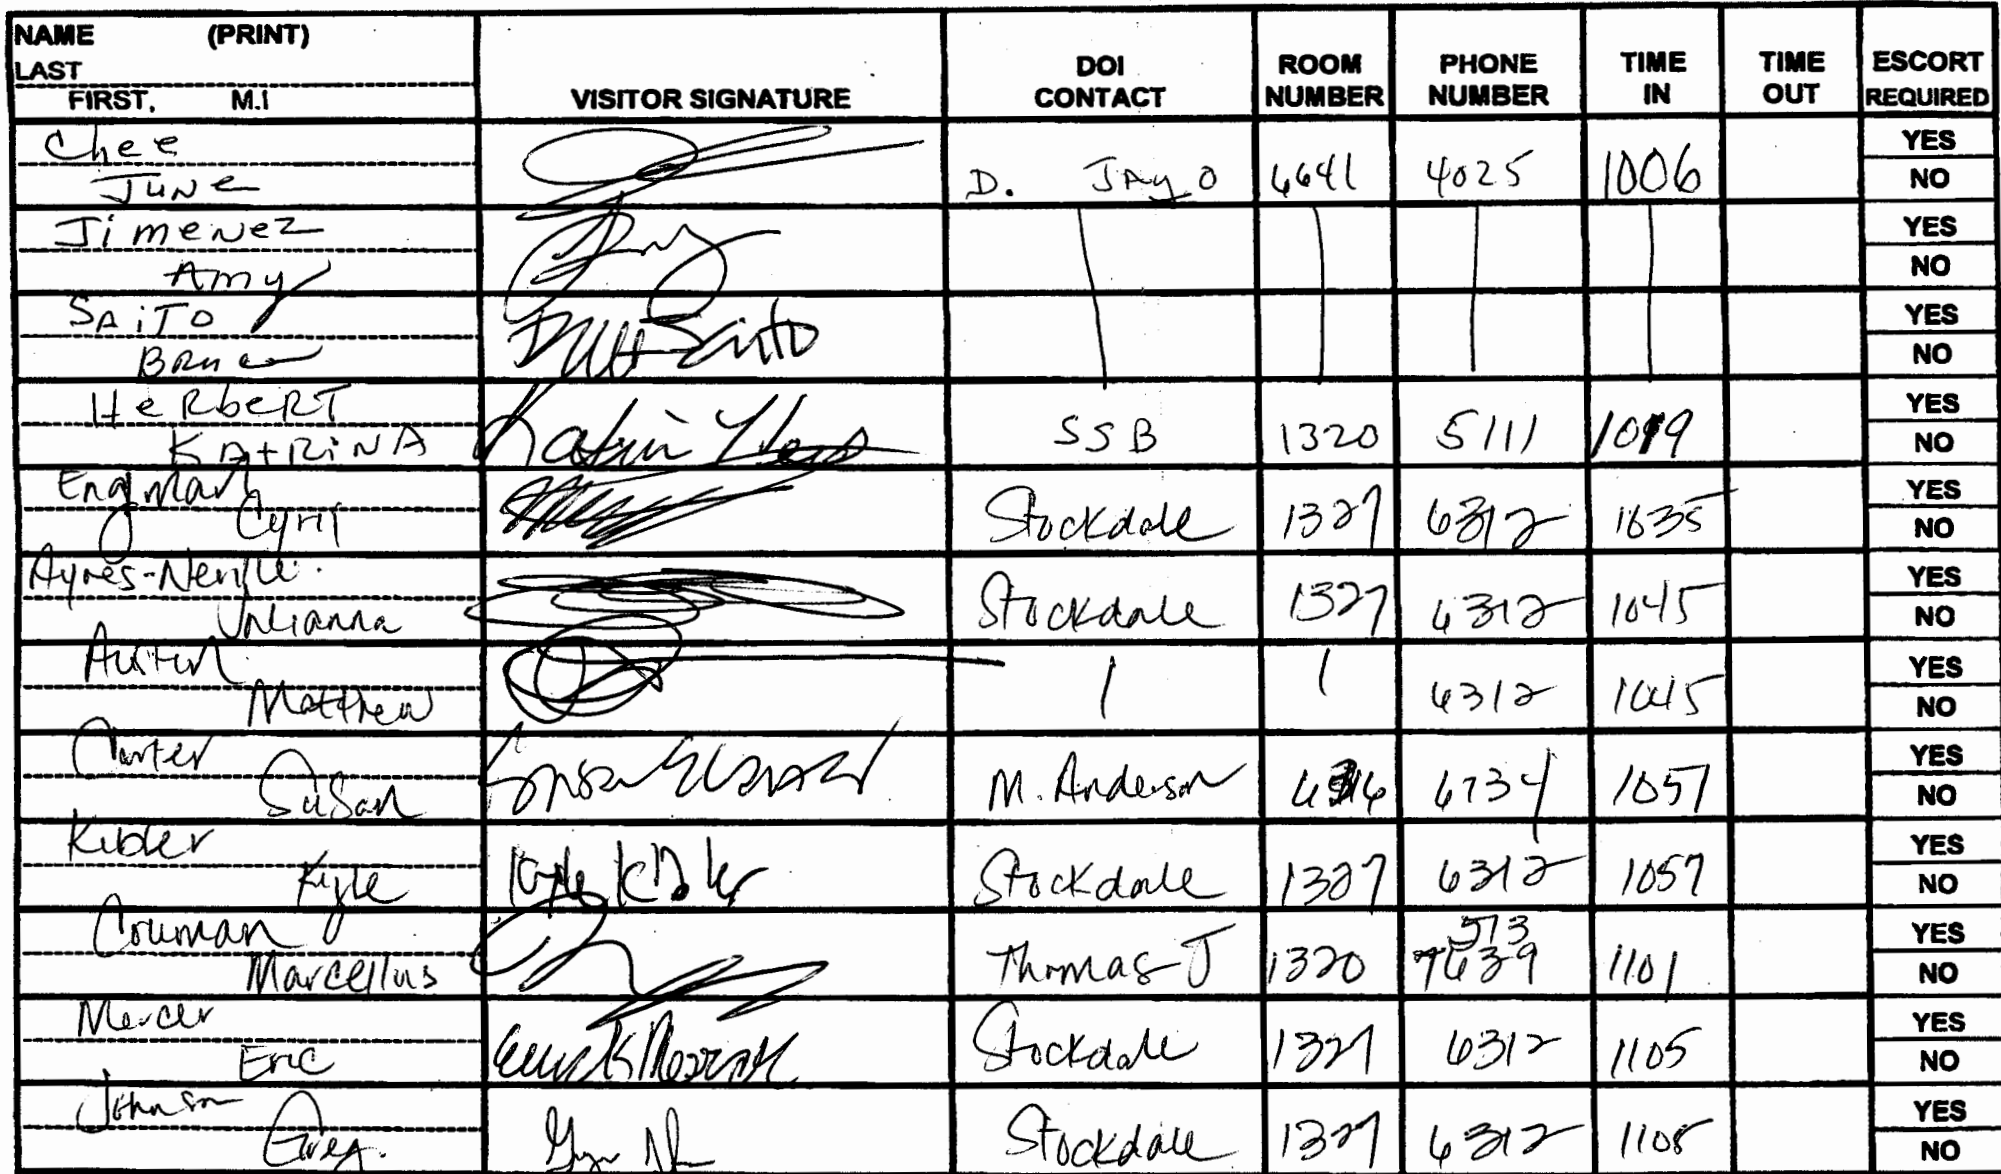 NAME (PRINT)
LAST
FIRST, M.I
VISITOR SIGNATURE
DOI CONTACT
ROOM NUMBER
PHONE NUMBER
TIME IN
TIME OUT
ESCORT REQUIRED
Chee
June D. Jayo 6641 4025 1006 YES NO
Jimenez
Amy YES NO
SAiTO
Bruce Saito YES NO
HeRbeRT
KAtRiNA SSB 1320 5111 YES NO
Engman
Cyril Stockdale 1327 6312 1035 YES NO
Ayres-Neville
Julianna Stockdale 1327 6312 1045 YES NO
Austin
Matthew 6312 1045 YES NO
Carter
Susan M. Anderson 6734 1057 YES NO
Kibler
Kyle Kyle Kibler Stockdale 1327 6312 1057 YES NO
Couman
Marcellus Thomas J 1320 513 7639 1101 YES NO
Mercer
Eric Stockdale 1327 6312 1105 YES NO
Johnson
Greg Stockdale 1327 6312 1105 YES NO